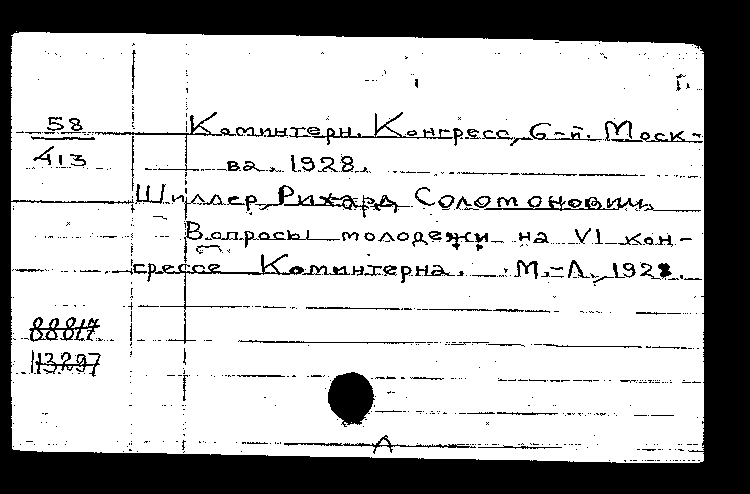 58
413
Коминтерн. Конгресс, 6-й. Моск-
ва. 1928.
Шиллер, Рихард Соломонович.
Вопросы молодежи на VI кон-
грессе Коминтерна. М.-Л., 1928.
88817
113297